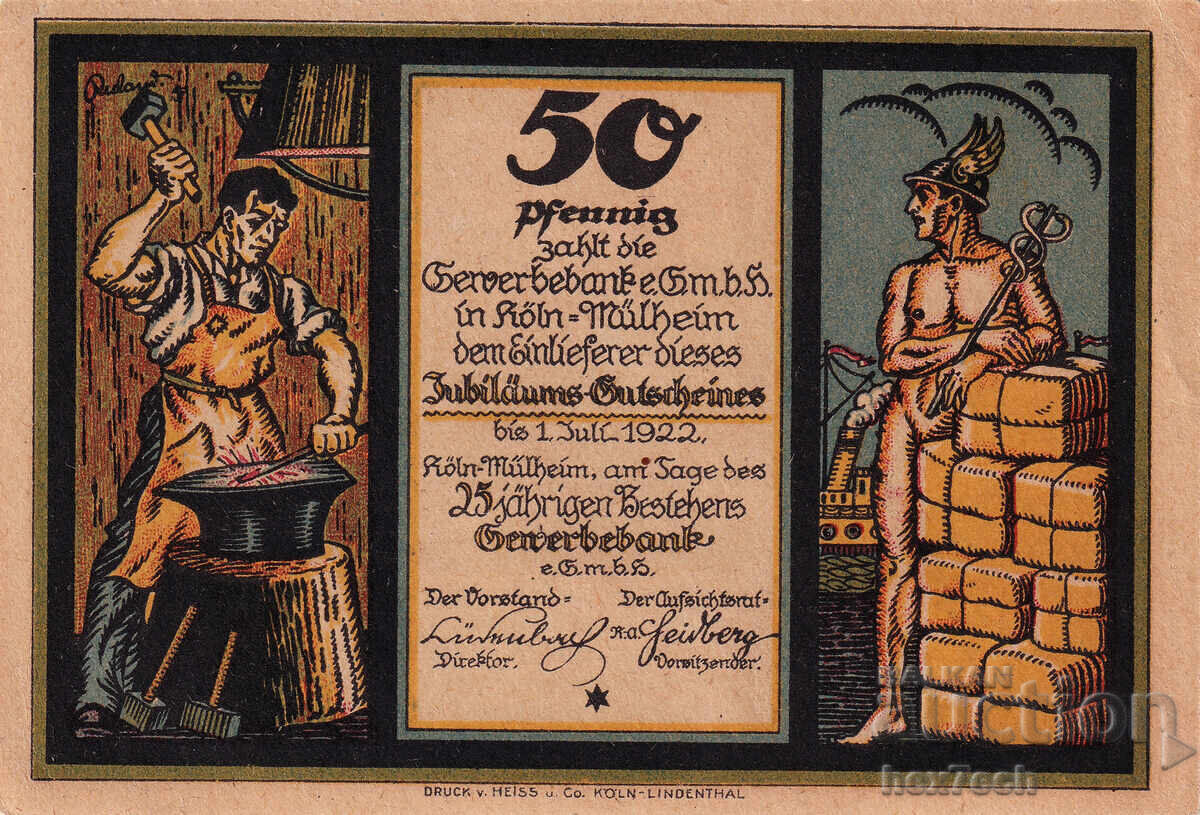 50
Pfennig
zahlt die
Gewerbebank e.G.m.b.H.
in Köln-Mülheim
dem Einlieferer dieses
Jubiläums-Gutscheines
bis 1. Juli 1922.
Köln-Mülheim, am Tage des
25 jährigen Bestehens
Gewerbebank
e.G.m.b.H.
Der Vorstand= Der Aufsichtsrat=
R.A.
Direktor. Vorsitzender.
DRUCK v. HEISS u. Co. KÖLN-LINDENTHAL
BALKAN
auction
hex7cch